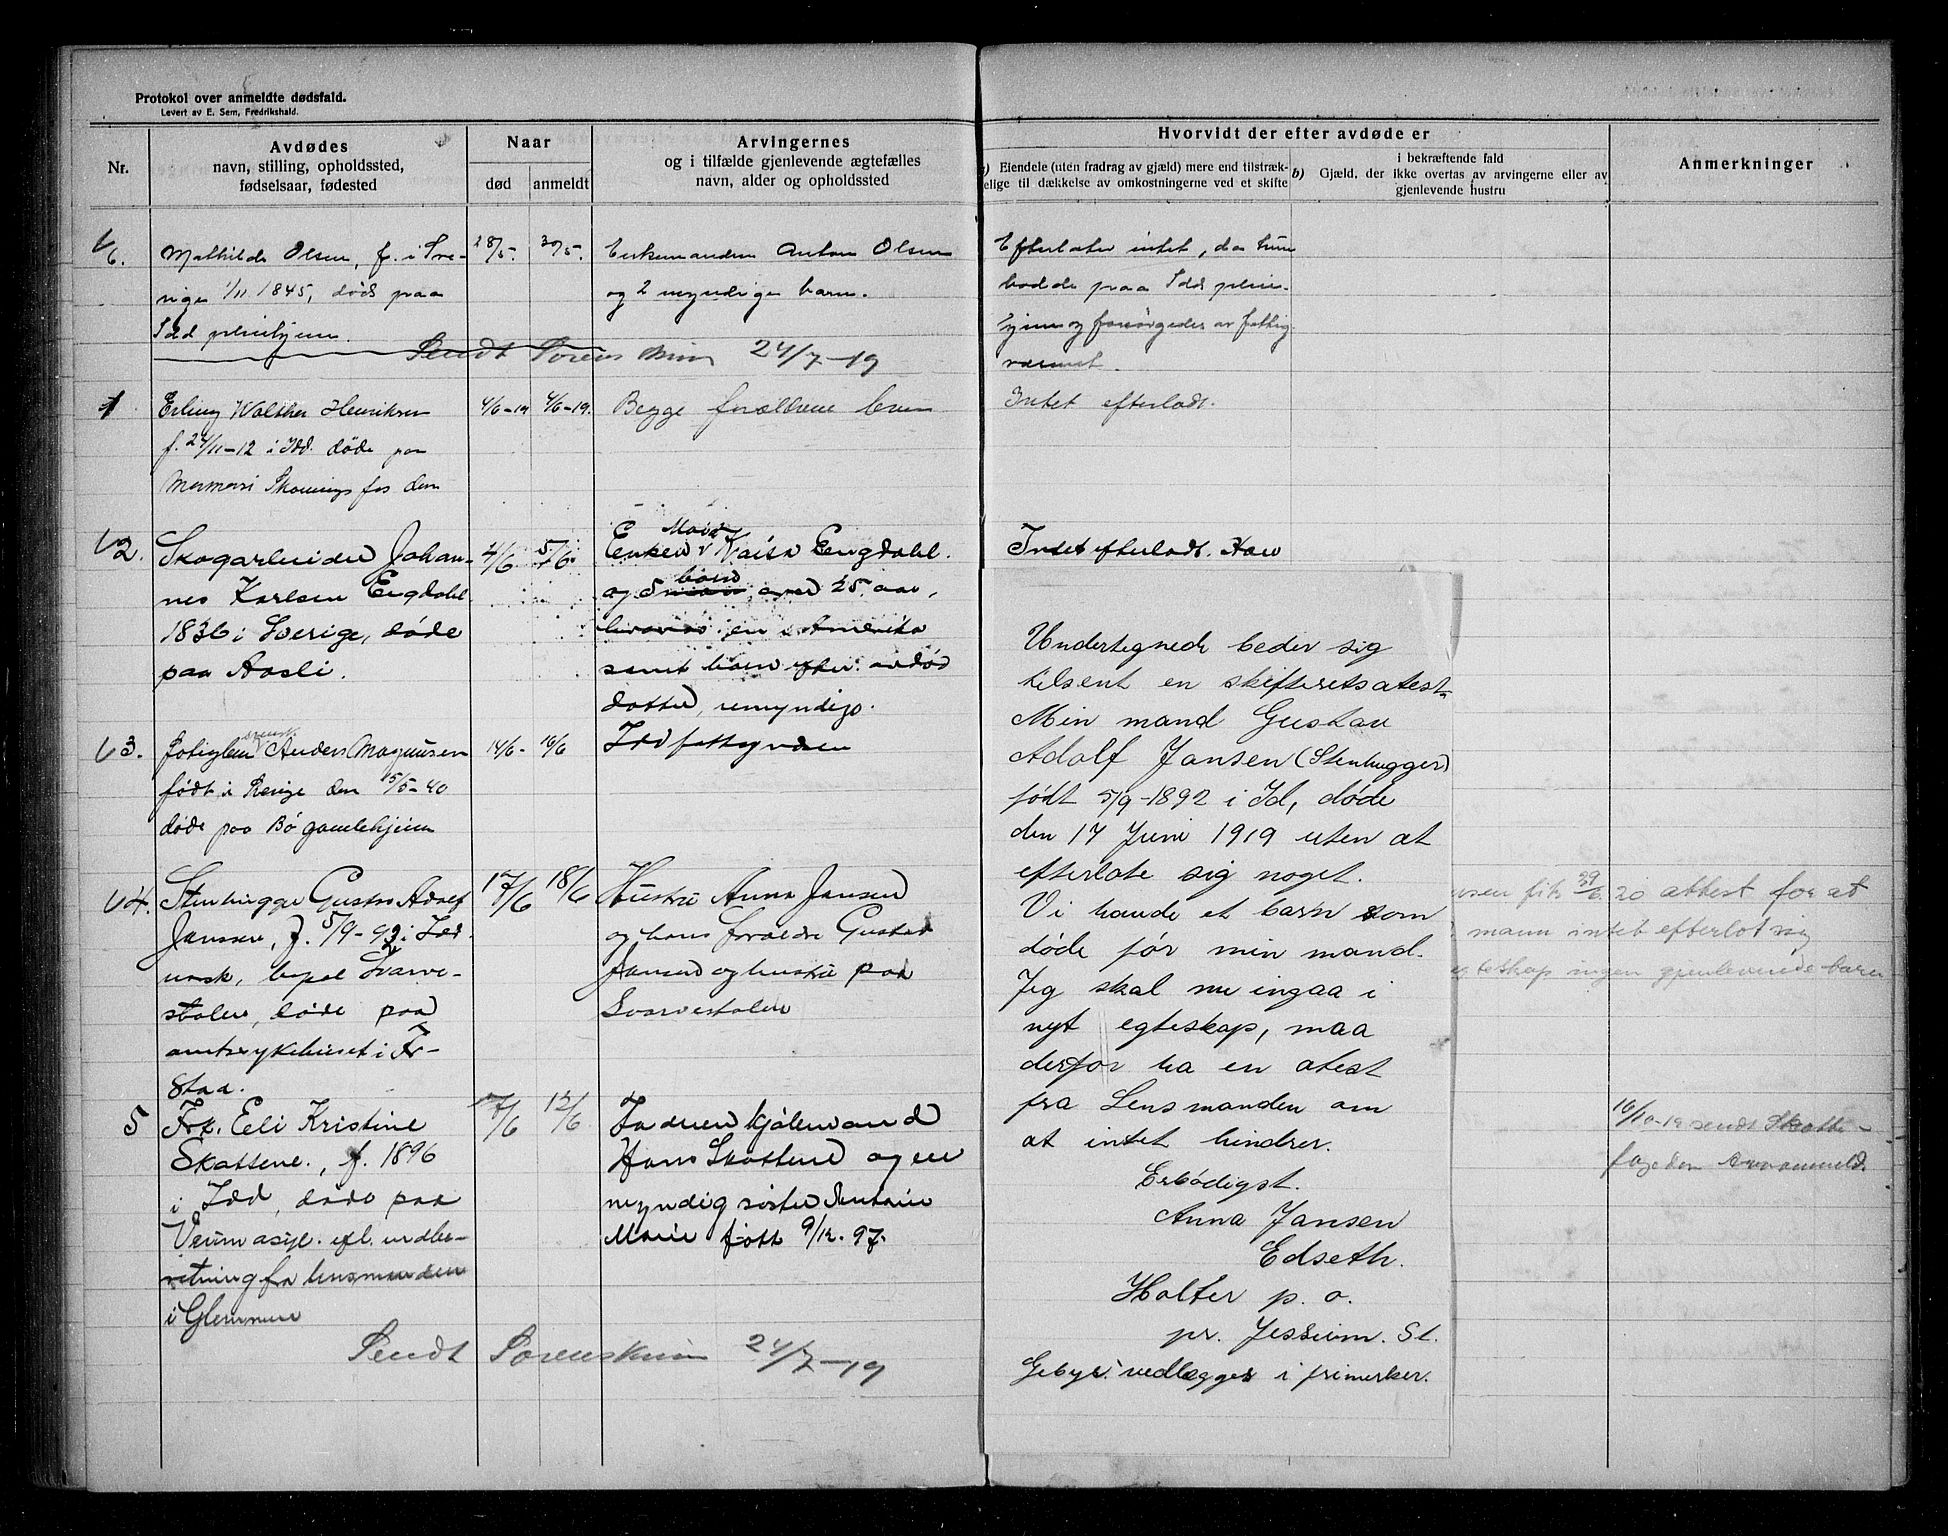 Protokol over anmeldte dødsfald.
Levert av E. Sem, Fredrikshald.
Nr.
Avdødes
navn, stilling, opholdssted,
fødselsaar, fødested
Naar
død
anmeldt
Arvingernes
og i tilfælde gjenlevende ægtefælles
navn, alder og opholdssted
Hvorvidt der efter avdøde er
a) Eiendele (uten fradrag av gjæld) mere end tilstræk-
kelige til dækkelse av omkostningerne ved et skifte
i bekræftende fald
b) Gjæld, der ikke overtas av arvingerne eller av
gjenlevende hustru
Anmerkninger
Mathilde Olsen, f. i Sve-
rige 1/11 1845, døds paa
Idd pleiehjem.
28/5-
30/5-
Enkemanden Anton Olsen
og 2 myndige barn.
Efterlater intet, da hun
bodde paa Idd pleie-
hjem og forsørgedes av fattig
væsenet.
Sendt Sorenskriv 24/7-19
1
Erling Walther Henriksen
f. 24/11-12 i Idd. døde paa
4/6-19
4/6-19.
Begge forældrene lever
Intet efterladt.
62.
Skogarbeider Johan-
nes Karlsen Engdahl
1836 i Sverige, døde
paa Aasli.
4/6
5/6.
Enken Maria Kaisa Engdahl.
og 5 barn over 25 aar,
hvorav en i Amerika
samt barn efter avdød
datter, umyndige.
Intet efterladt.
63.
Fattiglem svensk Anders Magnusen
født i Sverige den 15/5-40
døde paa Bø gamlehjem
14/6-
16/6
Idd fattigvæsen
64.
Stenhugger Gustav Adolf
Jansen, f. 5/9-92 i Idd
norsk, bopel Svarve-
stolen, døde paa
amtssykehuset i Fr-
stad.
17/6
18/6
Hustru Anna Jansen
og hans forældre Gustav
Jansen og hustru paa
Svarvestolen
5
Frk. Eli Kristine
Skattene., f. 1896
i Idd, døde paa
Veum asyl. efl. indbe-
retning fra lensmanden
i Glemmen
7/6
12/6
Faderen kjølemand
Hans Skattene og en
myndig søster Antonie
Marie født 9/12. 97.
Sendt Sorenskriv 24/7-19
Undertegnede beder sig
tilsent en skifteretsatest.
Min mand Gustav
Adolf Jansen (Stenhugger)
født 5/9-1892 i Id, døde
den 17 Juni 1919 uten at
efterlate sig noget.
Vi havde et barn som
døde før min mand.
Jeg skal nu ingaa i
nyt egteskap, maa
derfor ha en atest
fra Lensmanden om
at intet hindrer.
Erbødigst.
Anna Jansen
Edseth.
Holter p. o.
pr. Jessheim. St.
Gebyr vedlægges i frimerker.
nsen fik 29/6.20 attest for at
mann intet efterlot sig
teskap ingen gjenlevende barn
16/10-19 sendt Skatte-
fogeden